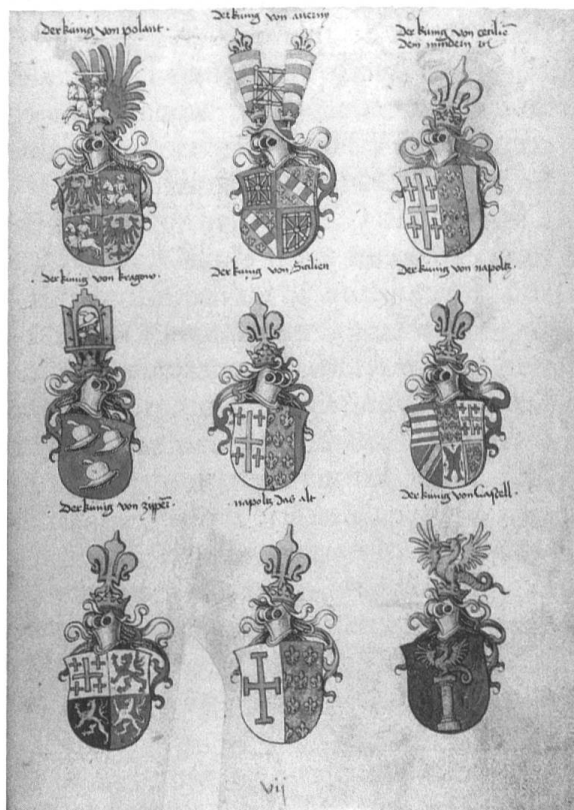 Der kunig von polant.
Der kunig von
Der kunig von cecilie
Dem mindern
Der kunig von kragow.
Der kunig von Sicilien
Der kunig von napolz.
Der kunig von zyper.
napolz das alt.
Der kunig von Castell.
vij